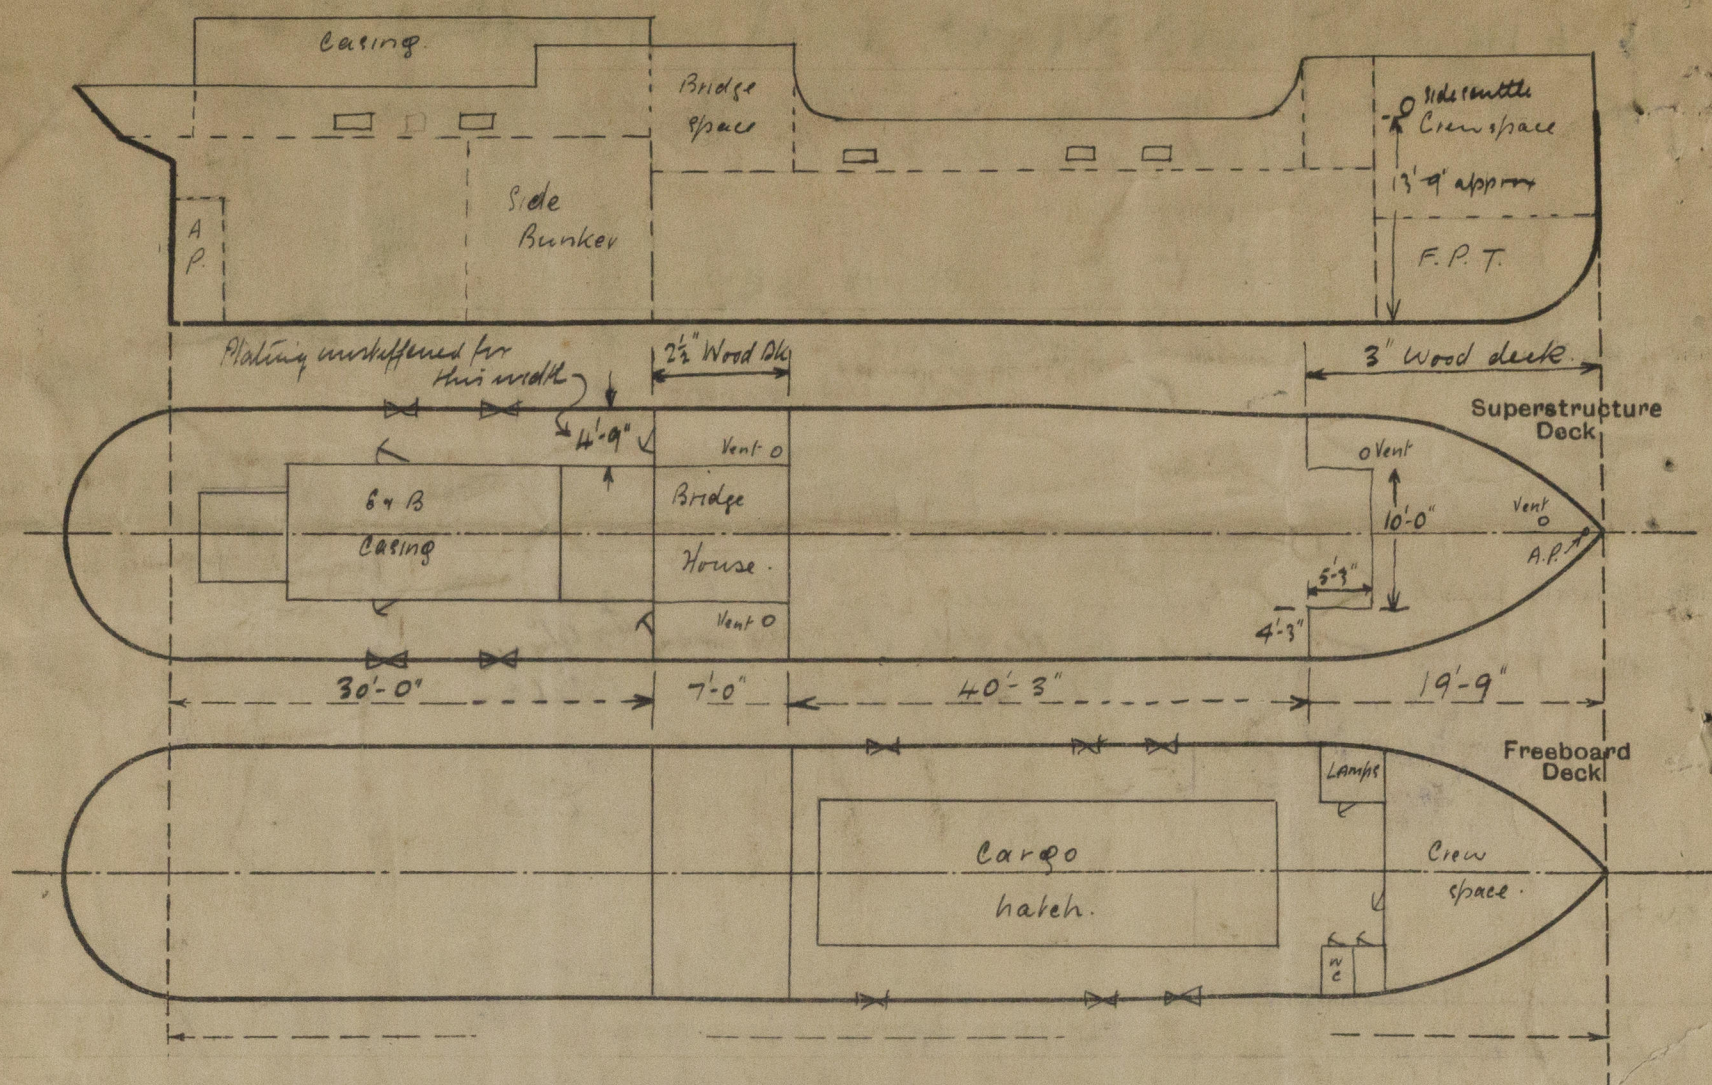 Casing.
Bridge
space
Side scuttle
Crew space
13'-9" approx
Side
Bunker
A
P.
F. P. T.
Plating unstiffened for
this width
2½" Wood Dk
3" Wood deck.
Superstructure
Deck
4'-9"
Vent
Vent
E & B
Casing
Bridge
House.
10'-0"
Vent
A.P.
5'-3"
4'-3"
Vent
30'-0"
7'-0"
40'-3"
19'-9"
Freeboard
Deck
LAMPS
Cargo
hatch.
Crew
space.
W
C